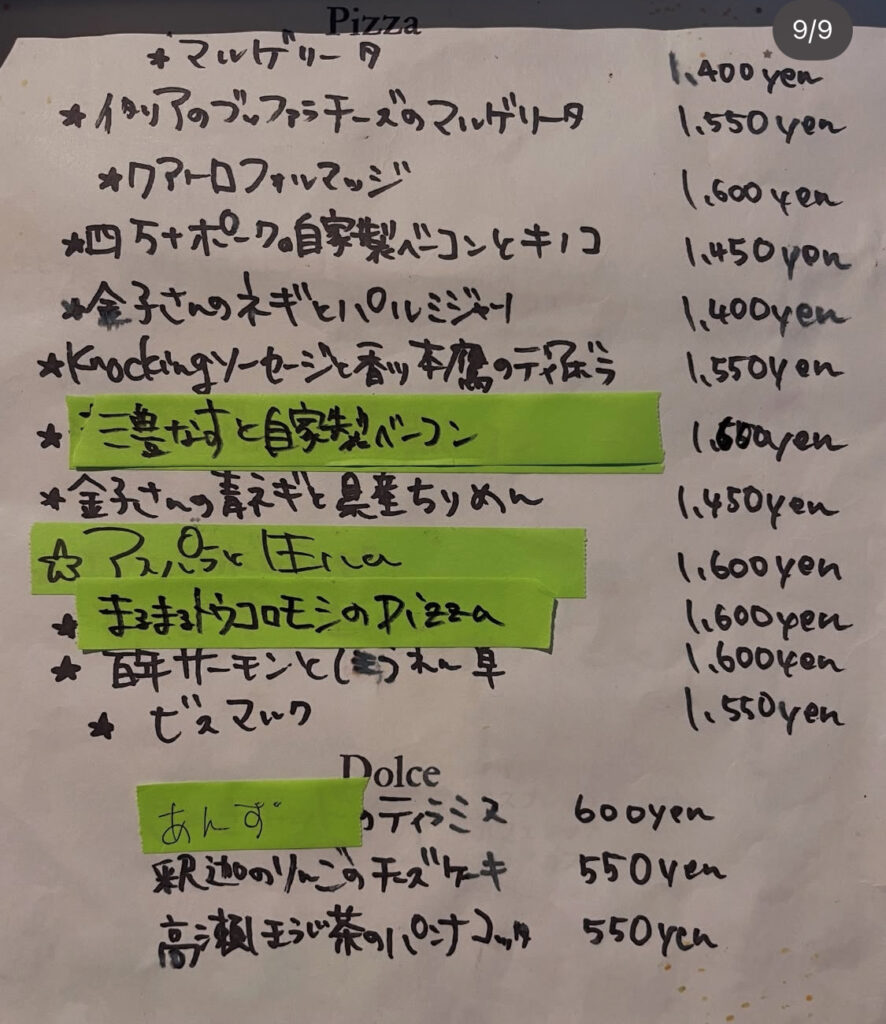 9/9
Pizza
★マルゲリータ 1,400yen
★イタリアのブッファラチーズのマルゲリータ 1,550yen
★クアトロフォルマッジ 1,600yen
★四万十ポークの自家製ベーコンとキノコ 1,450yen
★金子さんのネギとパルミジャーノ 1,400yen
★Knockingソーセージと香川本鷹のディアボラ 1,550yen
★三豊なすと自家製ベーコン yen
★金子さんの青ネギと県産ちりめん 1,450yen
☆アスパラと生ハム 1,600yen
★まるまるトウモロコシのpizza 1,600yen
★百年サーモンとほうれん草 1,600yen
★ビスマルク 1,550yen
Dolce
あんずのティラミス 600yen
釈迦のりんごのチーズケーキ 550yen
高瀬ほうじ茶のパンナコッタ 550yen